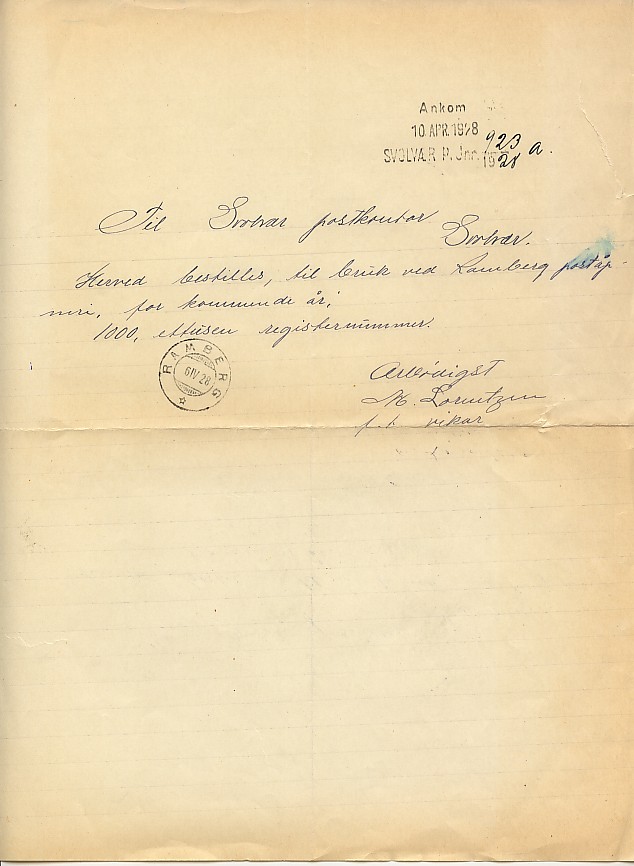 Ankom
10 APR. 1928
SVOLVÆR P. Jnr. 923 a.
1928
Til Svolvær postkontor
Svolvær.
Herved bestilles, til bruk ved Ramberg poståp-
neri, for kommende år;
1000, ettusen registernummer.
RAMBERG
6 IV 28
Arbødigst
M. Lorentzen
p. t. vikar